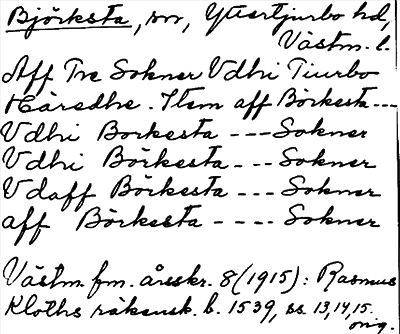 Björksta, sn, Yttertjurbo hd,
Västm. l.
Aff Tre Sokner Vdhi Tiurbo
Häredhe. Item aff Börkesta ---
Vdhi Borkesta --- Sokner
Vdhi Börkesta --- Sokner
Vdaff Börkesta --- Sokner
aff Börkesta ---- Sokner
Västm. fm. årsskr. 8 (1915): Rasmus
Kloths räkensk. b. 1539, ss. 13, 14, 15.
orig.